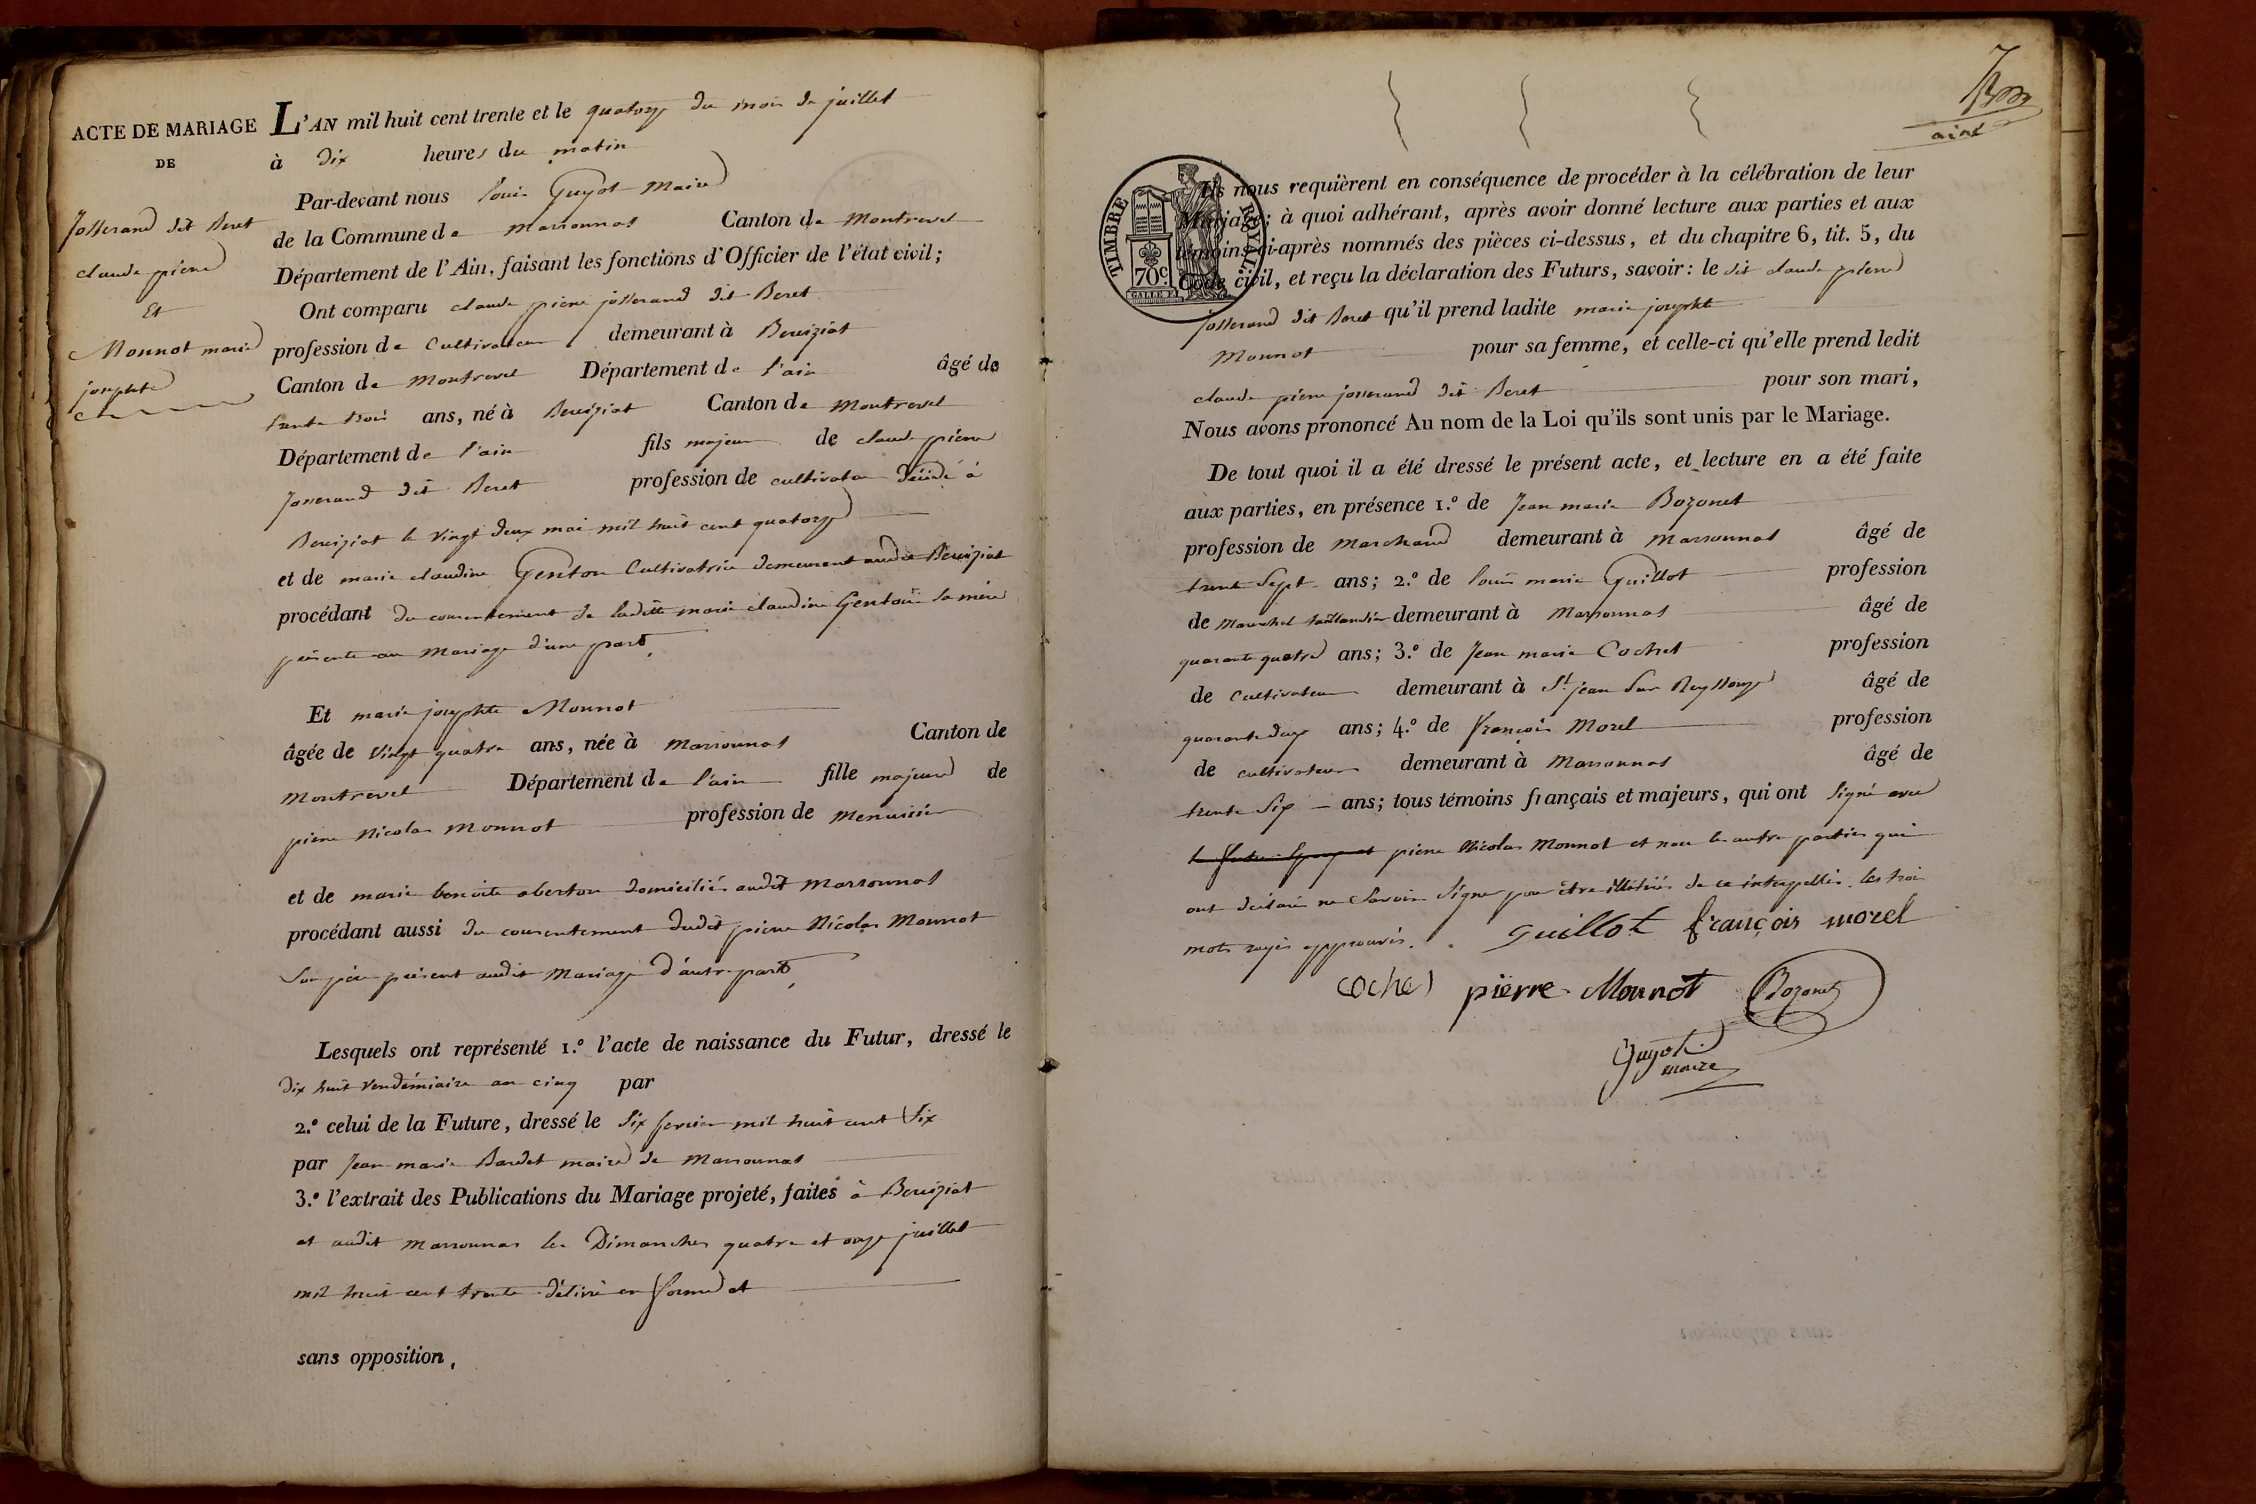 ACTE DE MARIAGE
DE
Josserand dit Beret
claude pierre
Et
Monnot marie
josephte
L'AN mil huit cent trente et le quatorze du mois de juillet
à dix heures du matin
Par-devant nous louis Guyot Maire
de la Commune de marsonnas Canton de Montrevel
Département de l'Ain, faisant les fonctions d'Officier de l'état civil;
Ont comparu claude pierre josserand dit Beret
profession de Cultivateur demeurant à Bereiziat
Canton de montrevel Département de l'ain âgé de
trente trois ans, né à Bereiziat Canton de montrevel
Département de l'ain fils majeur de claude pierre
Josserand dit Beret profession de cultivateur décédé à
Bereiziat le vingt deux mai mil huit cent quatorze
et de marie claudine Genton Cultivatrice demeurant audit Bereiziat
procédant du consentement de ladite marie claudine Genton sa mère
présente au mariage d'une part
Et marie josephte Monnot
âgée de vingt quatre ans, née à marsonnas Canton de
Montrevel Département de l'ain fille majeure de
pierre Nicolas Monnot profession de menuisier
et de marie benoite aberton domiciliés audit marsonnas
procédant aussi du consentement dudit pierre Nicolas Monnot
son père présent audit mariage d'autre part
Lesquels ont représenté 1.º l'acte de naissance du Futur, dressé le
dix huit vendémiaire an cinq par
2.º celui de la Future, dressé le six fevrier mil huit cent six
par Jean marie Bardet maire de marsonnas
3.º l'extrait des Publications du Mariage projeté, faites à Bereiziat
et audit marsonnas les Dimanches quatre et onze juillet
mil huit cent trente délivré en forme et
sans opposition,
7
ainé
TIMBRE ROYAL
70c.
Ils nous requièrent en conséquence de procéder à la célébration de leur
Mariage; à quoi adhérant, après avoir donné lecture aux parties et aux
témoins ci-après nommés des pièces ci-dessus, et du chapitre 6, tit. 5, du
Code civil, et reçu la déclaration des Futurs, savoir: le dit claude pierre
josserand dit Beret qu'il prend ladite marie josephte
Monnot pour sa femme, et celle-ci qu'elle prend ledit
claude pierre josserand dit Beret pour son mari,
Nous avons prononcé Au nom de la Loi qu'ils sont unis par le Mariage.
De tout quoi il a été dressé le présent acte, et lecture en a été faite
aux parties, en présence 1.º de Jean marie Bozonet
profession de marchand demeurant à marsonnas âgé de
trente sept ans; 2.º de louis marie Guillot profession
de marechal taillandier demeurant à Marsonnas âgé de
quarante quatre ans; 3.º de Jean marie Cochet profession
de Cultivateur demeurant à St. jean sur Reyssouze âgé de
quarante deux ans; 4.º de françois Morel profession
de cultivateur demeurant à Marsonnas âgé de
trente six ans; tous témoins français et majeurs, qui ont signé avec
le futur Epoux et pierre Nicolas Monnot et non les autres parties qui
ont déclaré ne savoir signer pour être illétérés de ce interpellés. les trois
mots rayés approuvés.
Guillot françois morel
cochet pierre Monnot Bozonet
Guyot
maire